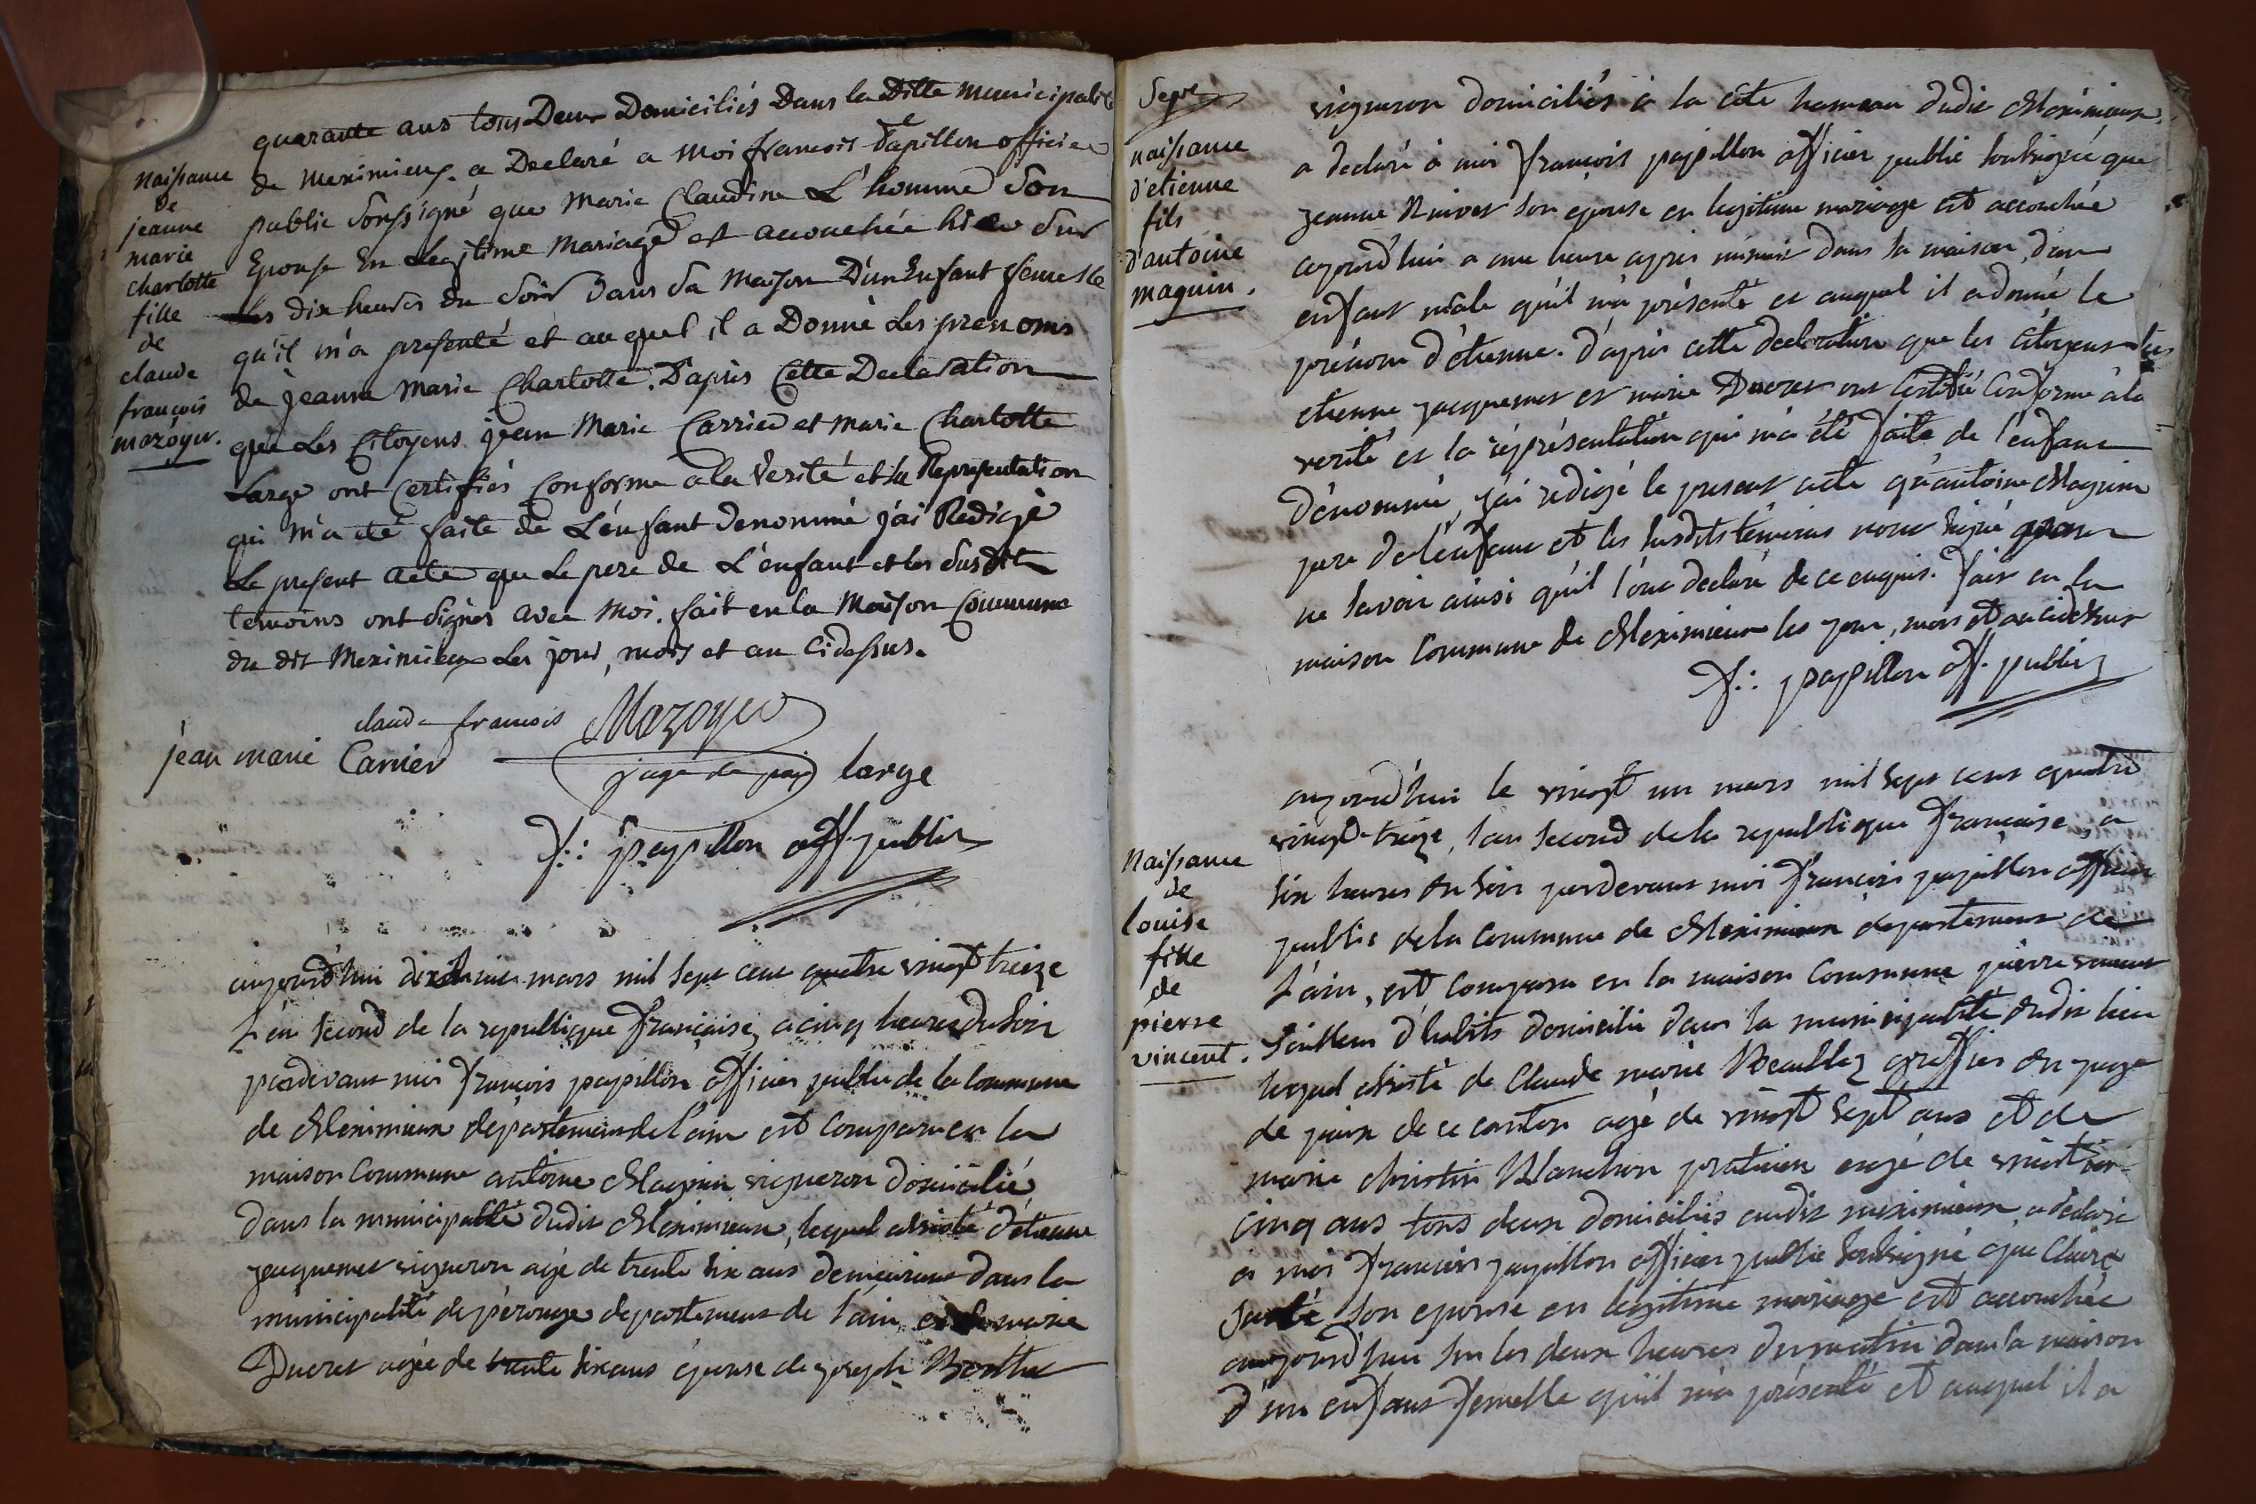 quarante ans tous Deux Domiciliés Dans la Ditte municipalité
de meximieux. a Declaré a moi francois Papillon officier
public soussigné que Marie Claudine L'homme son
Epouse En Legitime Mariage est accouchée hier sur
les dix heures du soir dans sa maison D'un Enfant femelle
qu'il m'a presenté et auquel il a Donné Les prenoms
de jeanne marie Charlotte. D'après Cette Declaration
que Les Citoyens jean Marie Carrier et marie Charlotte
Large ont Certifiés Conforme a la Verité et la Representation
qui m'a été faite de L'enfant denommé j'ai Redigé
Le present acte que Le pere de L'enfant et les susdits
temoins ont signés avec Moi. fait en la Maison Commune
du dit Meximieux Les jour, mois et an Cidessus.
naissance
de
jeanne
marie
charlotte
fille
de
claude
françois
mazoyer.
claude francois Mazoyer
jean marie Carrier
juge de paix large
f: papillon off. public
aujourd'hui mars mil sept cent quatre vingt treize
L'an second de la republique française, a cinq heures du soir
pardevant moi françois papillon officier public de la commune
de Meximieux département de l'ain est comparu en la
maison Commune antoine Maguin vigneron domicilié
dans la municipalité dudit Meximieux, lequel assisté d'étienne
jacquemet vigneron agé de trente six ans demeurant dans la
municipalité de pérouge departement de l'ain, et de marie
Ducret agée de trente six ans épouse de joseph Berthet
naissance
d'etienne
fils
d'antoine
maguin.
vigneron domiciliés à la côte hameau dudit Meximieux.
a declaré à moi françois papillon officier public soussigné que
jeanne son epouse en legitime mariage est accouchée
aujourd'hui a une heure après minuit dans sa maison, d'un
enfant mâle qu'il m'a présenté et auquel il a donné le
prénom d'étienne. d'après cette declaration que les citoyens
etienne jacquemet et marie Ducret ont certifié conforme à la
verité et la réprésentation qui m'a été faite de l'enfant
dénommé, j'ai redigé le present acte qu'antoine Maguin
pere de l'enfant et les susdits témoins n'ont signé pour
ne savoir ainsi qu'il l'ont declaré de ce enquis. fait en la
maison Commune de Meximieux les jour, mois et an cidessus
f: papillon off. public
aujourd'hui le vingt un mars mil sept cent quatre
vingt-treize, l'an second de la republique française, a
six heures du soir pardevant moi françois papillon officier
public de la commune de Meximieux département de
L'ain, est comparu en la maison Commune pierre vincent
tailleur d'habits domicilié dans la municipalité dudit lieu
lequel assisté de Claude marie greffier du juge
de paix de ce canton agé de vingt sept ans et de
marie christin Blanchon praticien agé de vingt
cinq ans tous deux domiciliés audit meximieux, a declaré
a moi françois papillon officier public soussigné que Claire
son epouse en legitime mariage est accouchée
aujourd'hui sur les deux heures du matin dans la maison
d'un enfant femelle qu'il m'a présenté et auquel il a
Naissance
de
louise
fille
de
pierre
vincent.